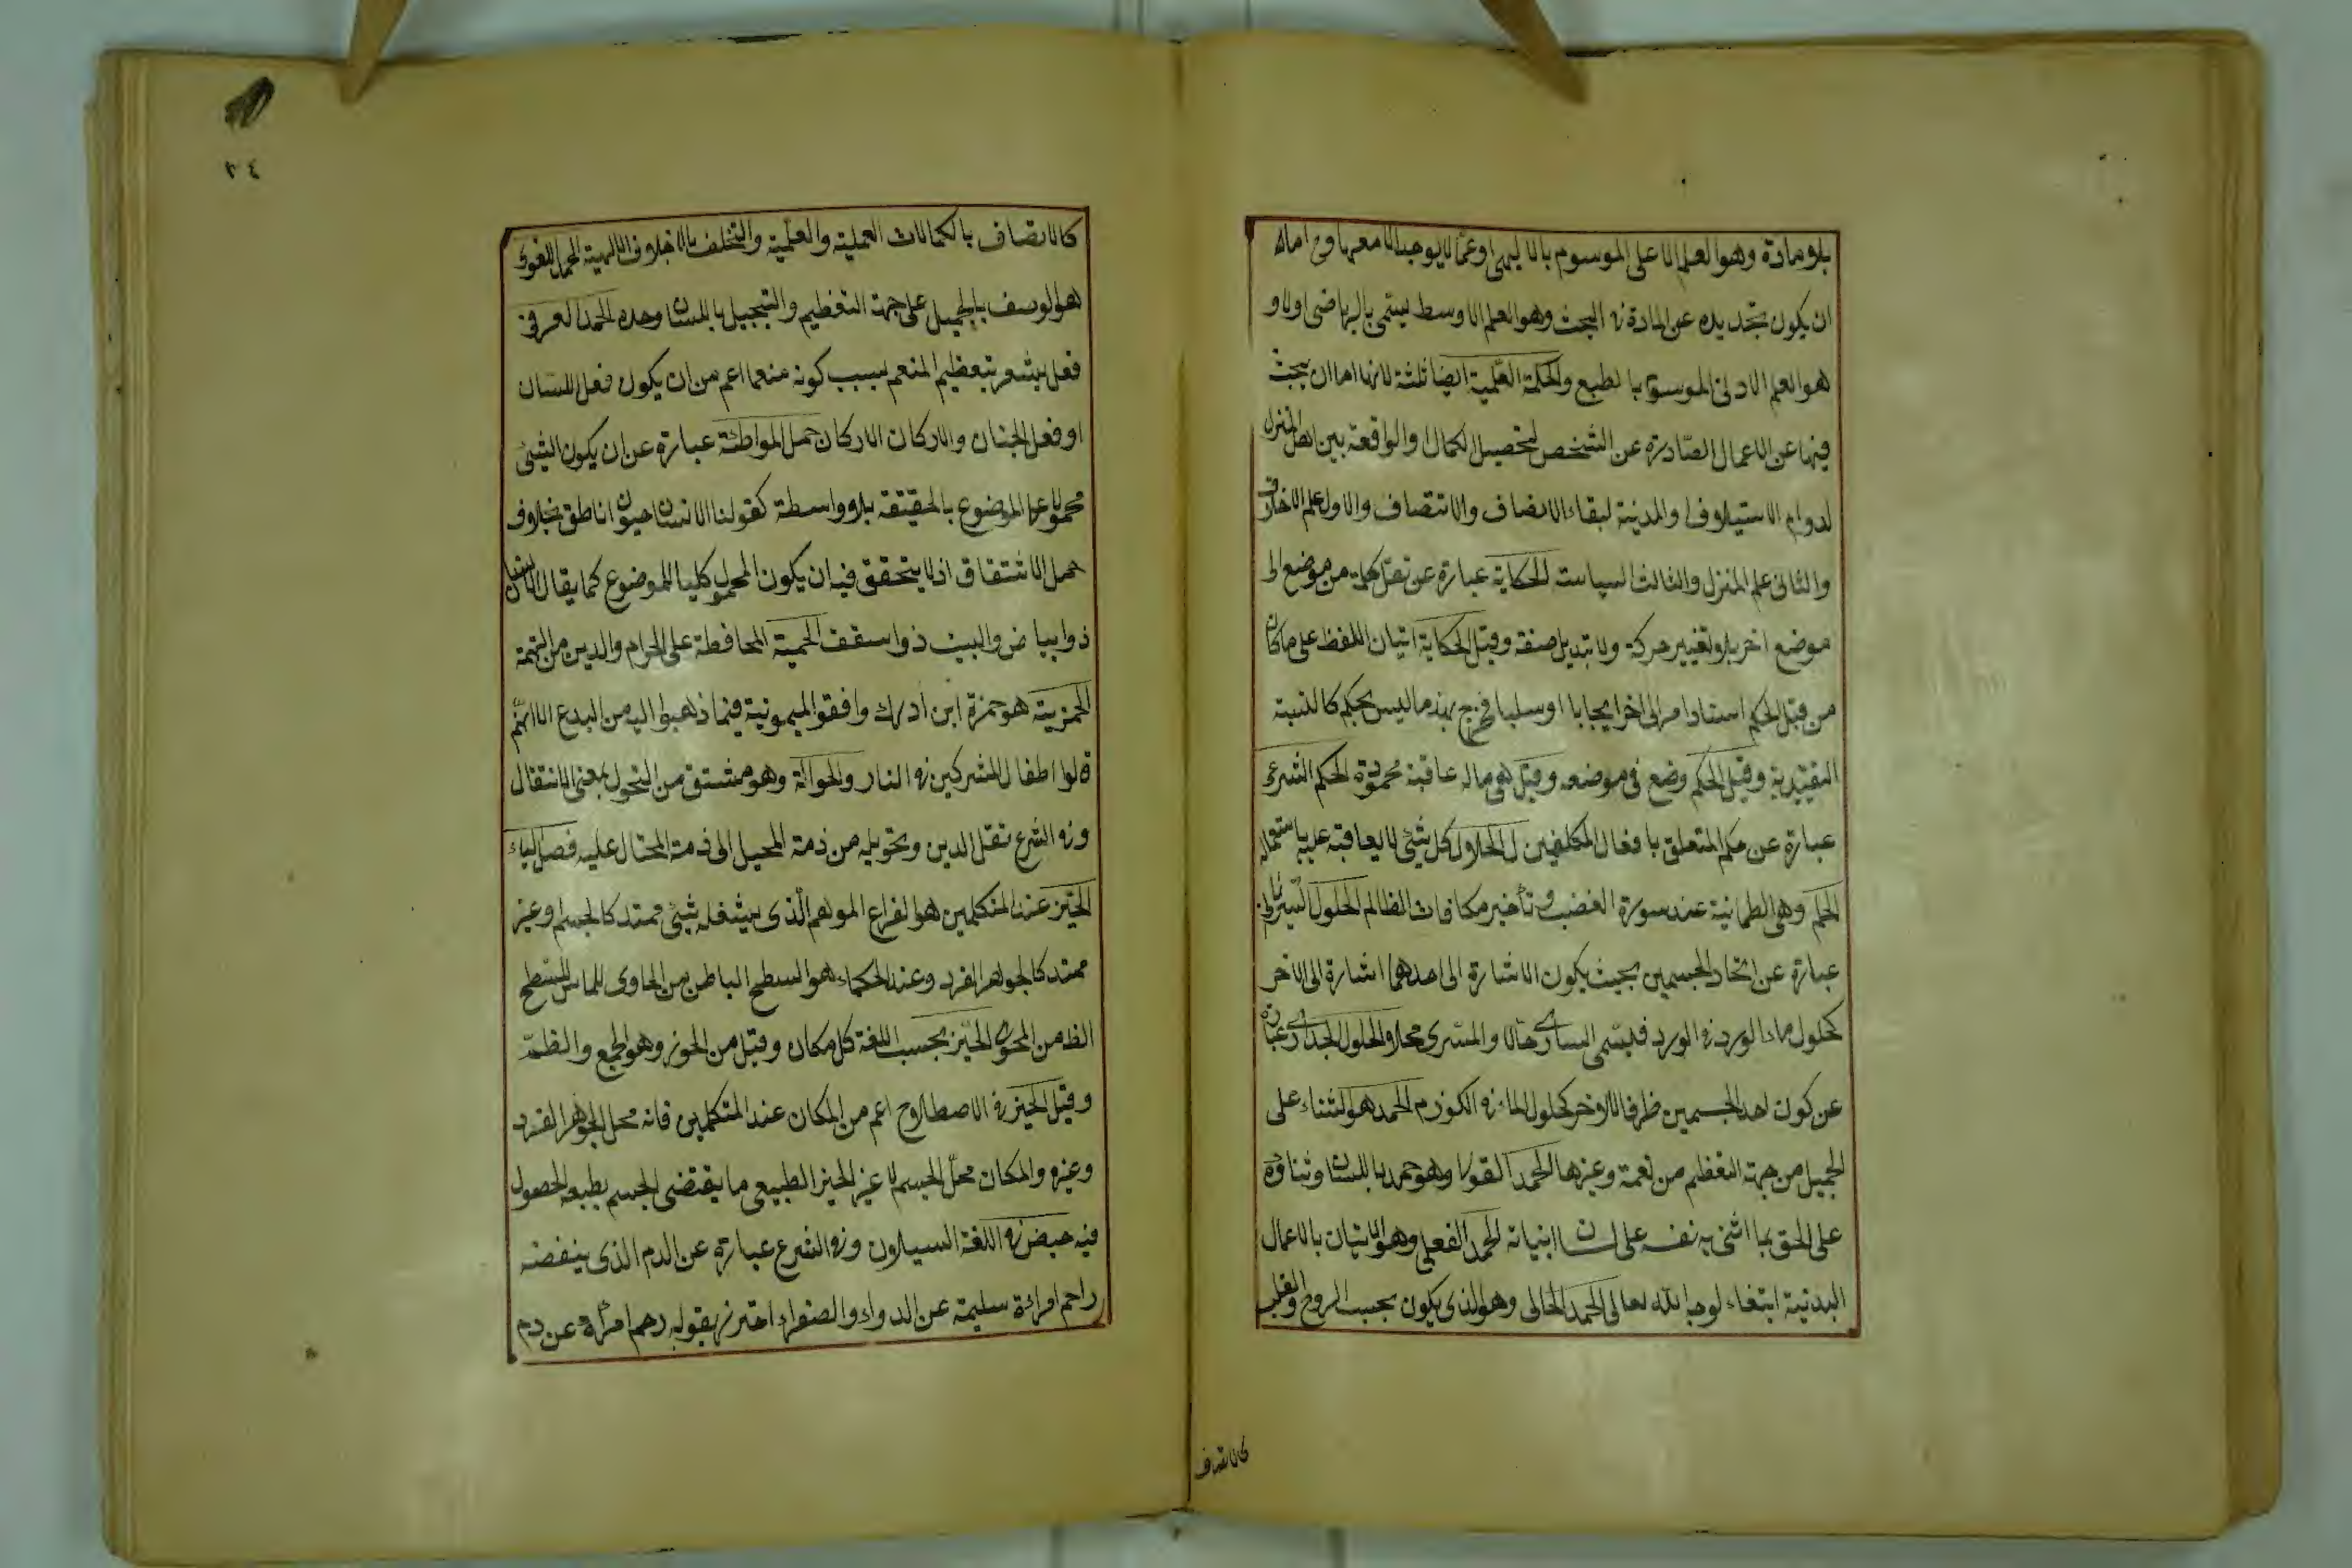 بلا مادة وهو العلم الاعلى الموسوم بالالهى او عما لا يوجد الا معها وهى اما
ان يكون تجديده عن المادة فى البحث وهو العلم الاوسط يسمى بالرياضى اولا و
هو العلم الادنى الموسوم با لطبع والحكمة العملية ايضا ثلثة لانها اما ان يبحث
فيها عن الاعمال الصادرة عن الشخص لتحصيل الكمال والواقعة بين اهل المنزل
لدوام الاستيلاف والمدينة لبقاء الانصاف والانتصاف والاول علم الاخلاق
والثانى علم المنزل والثالث السياسة الحكاية عبارة عن نقل كلمة من موضع الى
موضع اخر بلا تغيير حركة ولا تبديل صفة وقيل الحكاية اتيان اللفظ على ما كان
من قبل الحكم اسناد امر الى اخر ايجابا او سلبا فخرج بهذا ما ليس بحكم كا لنسبة
التقييدية وقيل الحكم وضع فى موضعه وقيل هو ماله عاقبة محمودة الحكم الشرعى
عبارة عن حكم المتعلق با فعال المكلفين الحلال كل شئ لا يعاقبة عليه باستعماله
الحلم وهى الطمانية عند سورة الغضب وتأخير مكافات الظالم الحلول السريانى
عبارة عن اتحاد الجسمين بحيث يكون الاشارة الى احدهما اشارة الى الاخر
كحلول ماء الورد فى الورد فيسمى السارى حالا والمسرى محلا والحلول الجدارى عبارة
عن كون احد الجسمين ظرفا للاخر كحلول الماء فى الكوز الحمد هو الثناء على
الجميل من جهة التعظيم من نعمة وغيرها الحمد القولى وهو حمد باللسان وثناؤه
على الحق بما اثنى به نفسه على لسان انبيائه الحمد الفعلى وهو الاتيان بالاعمال
البدنية ابتغاء لوجه الله تعالى الحمد الحالى وهو الذى يكون بحسب الروح والقلب
كالاتصاف
٢٤
كالاتصاف بالكمالات العملية والعلمية والتخلف بالاخلاق الالهية الحمد اللغوى
هو الوصف بالجميل على جهة التعظيم والتبجيل باللسان وحده الحمد العرفى
فعل يشعر بتعظيم المنعم بسبب كونه منعما اعم من ان يكون فعل اللسان
او فعل الجنان والاركان الاركان حمل المواطئة عبارة عن ان يكون الشئ
محمولا على الموضوع بالحقيقة بلا واسطة كقولنا الانسان حيوان ناطق بخلاف
حمل الاشتقاق اذ لا يتحقق فيه ان يكون المحمول كليا للموضوع كما يقال الانسان
ذو ابياض والبيت ذو اسقف الحمية المحافظة على الحرام والدين من التهمة
الحمزية هو حمزة ابن ادرك وافقوا الميمونية فيما ذهبوا اليه من البدع الا انهم
قالوا اطفال المشركين فى النار والحوالة وهو مشتق من التحول بمعنى الانتقال
وفى الشرع نقل الدين وتحويله من ذمة المحيل الى ذمة المحتال عليه فصل الياء
الحيز عند المتكلمين هو الفراغ الموهم الذى يشغله شئ ممتد كالجسم او غير
ممتد كالجوهر الفرد وعند الحكماء هو السطح الباطن من الحاوى للماس للسطح
الظ من المحوى الحيز بحسب اللغة كل مكان وقيل من الحوز وهو الجمع والظم
وقيل الحيز فى الاصطلاح اعم من المكان عند المتكلمين فانه محل الجوهر الفرد
وغيره والمكان محل الجسم لا غير الحيز الطبيعى ما يقتضى الجسم بطبعه الحصول
فيه حيض فى اللغة السيلان وفى الشرع عبارة عن الدم الذى ينفضه
راحم امراءة سليمة عن الدواء والصغراء احترز بقوله رحم امرأة عن دم